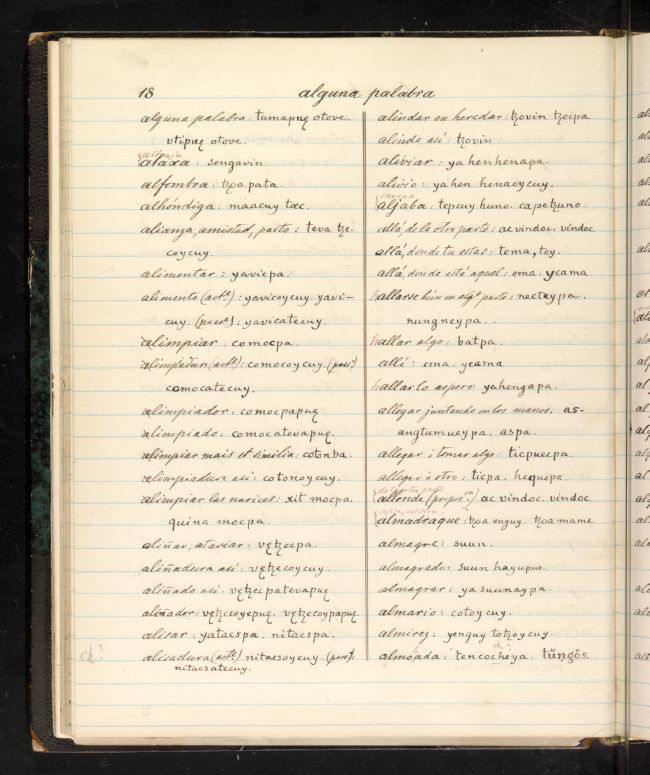 18
alguna palabra
alguna palabra: tumapuȩ otove.
vtipuȩ otove.
alfaja
alaxa: sengavin
alfombra: tzoa pata.
alhóndiga: maacuy tæc.
alianza, amistad, pacto: teva tze-
coycuy.
alimentar: yavicpa.
alimento (act.e): yavicoycuy. yavi-
cuy. (pass.e): yavicatecuy.
alimpiar: comocpa.
alimpiadura (act.e): comocoycuy. (pass.e)
comocatecuy.
alimpiador: comocpapuȩ
alimpiado: comocatevapuȩ.
alimpiar mais et similia: cotonba.
alimpiadura asi: cotonoycuy.
alimpiar las narices: xit mocpa.
quina mocpa.
aliñar, ataviar: vȩtzȩcpa.
aliñadura asi: vȩtzȩcoycuy.
aliñado asi: vȩtzȩcpatevapuȩ
aliñador: vȩtzȩcoyepuȩ. vȩtzȩcoypapuȩ.
alisar: yatacspa. nitacspa.
ch?
alisadura (act.e) nitacsoycuy. (pass.e):
nitacsatecuy.
alindar en heredar: tzovin tzȩcpa
alinde asi: tzovin.
aliviar: ya henhenapa.
alivio: ya hen henaoycuy.
aljaba: tepcuy huno. capetzuno.
allá, de la otra parte: ac vindoc. vindoc
allá, donde tu estas: tema, tey.
allá, donde esté aquel: ema. yeama
hallarse bien en alg.a parte: necteypa.
nungneypa.
hallar algo: batpa.
allí: ema. yeama
hallarlo aspero: yahengapa.
allegar juntando en los manos: as-
angtumueypa. aspa.
allegar i tomar algo: ticpuecpa.
allegar á otro: ticpa. hequepa.
de la otra parte
allende (prepos.on) ac vindoc. vindoc
almadraque: tzoa enguy. tzoa mame
almagre: suun.
almagrado: suun hayupue.
almagrar: ya suunaypa.
almario: cotoycuy.
almirez: yenguy totzoycuy.
almoada: tencocheya. tŭngŏs.